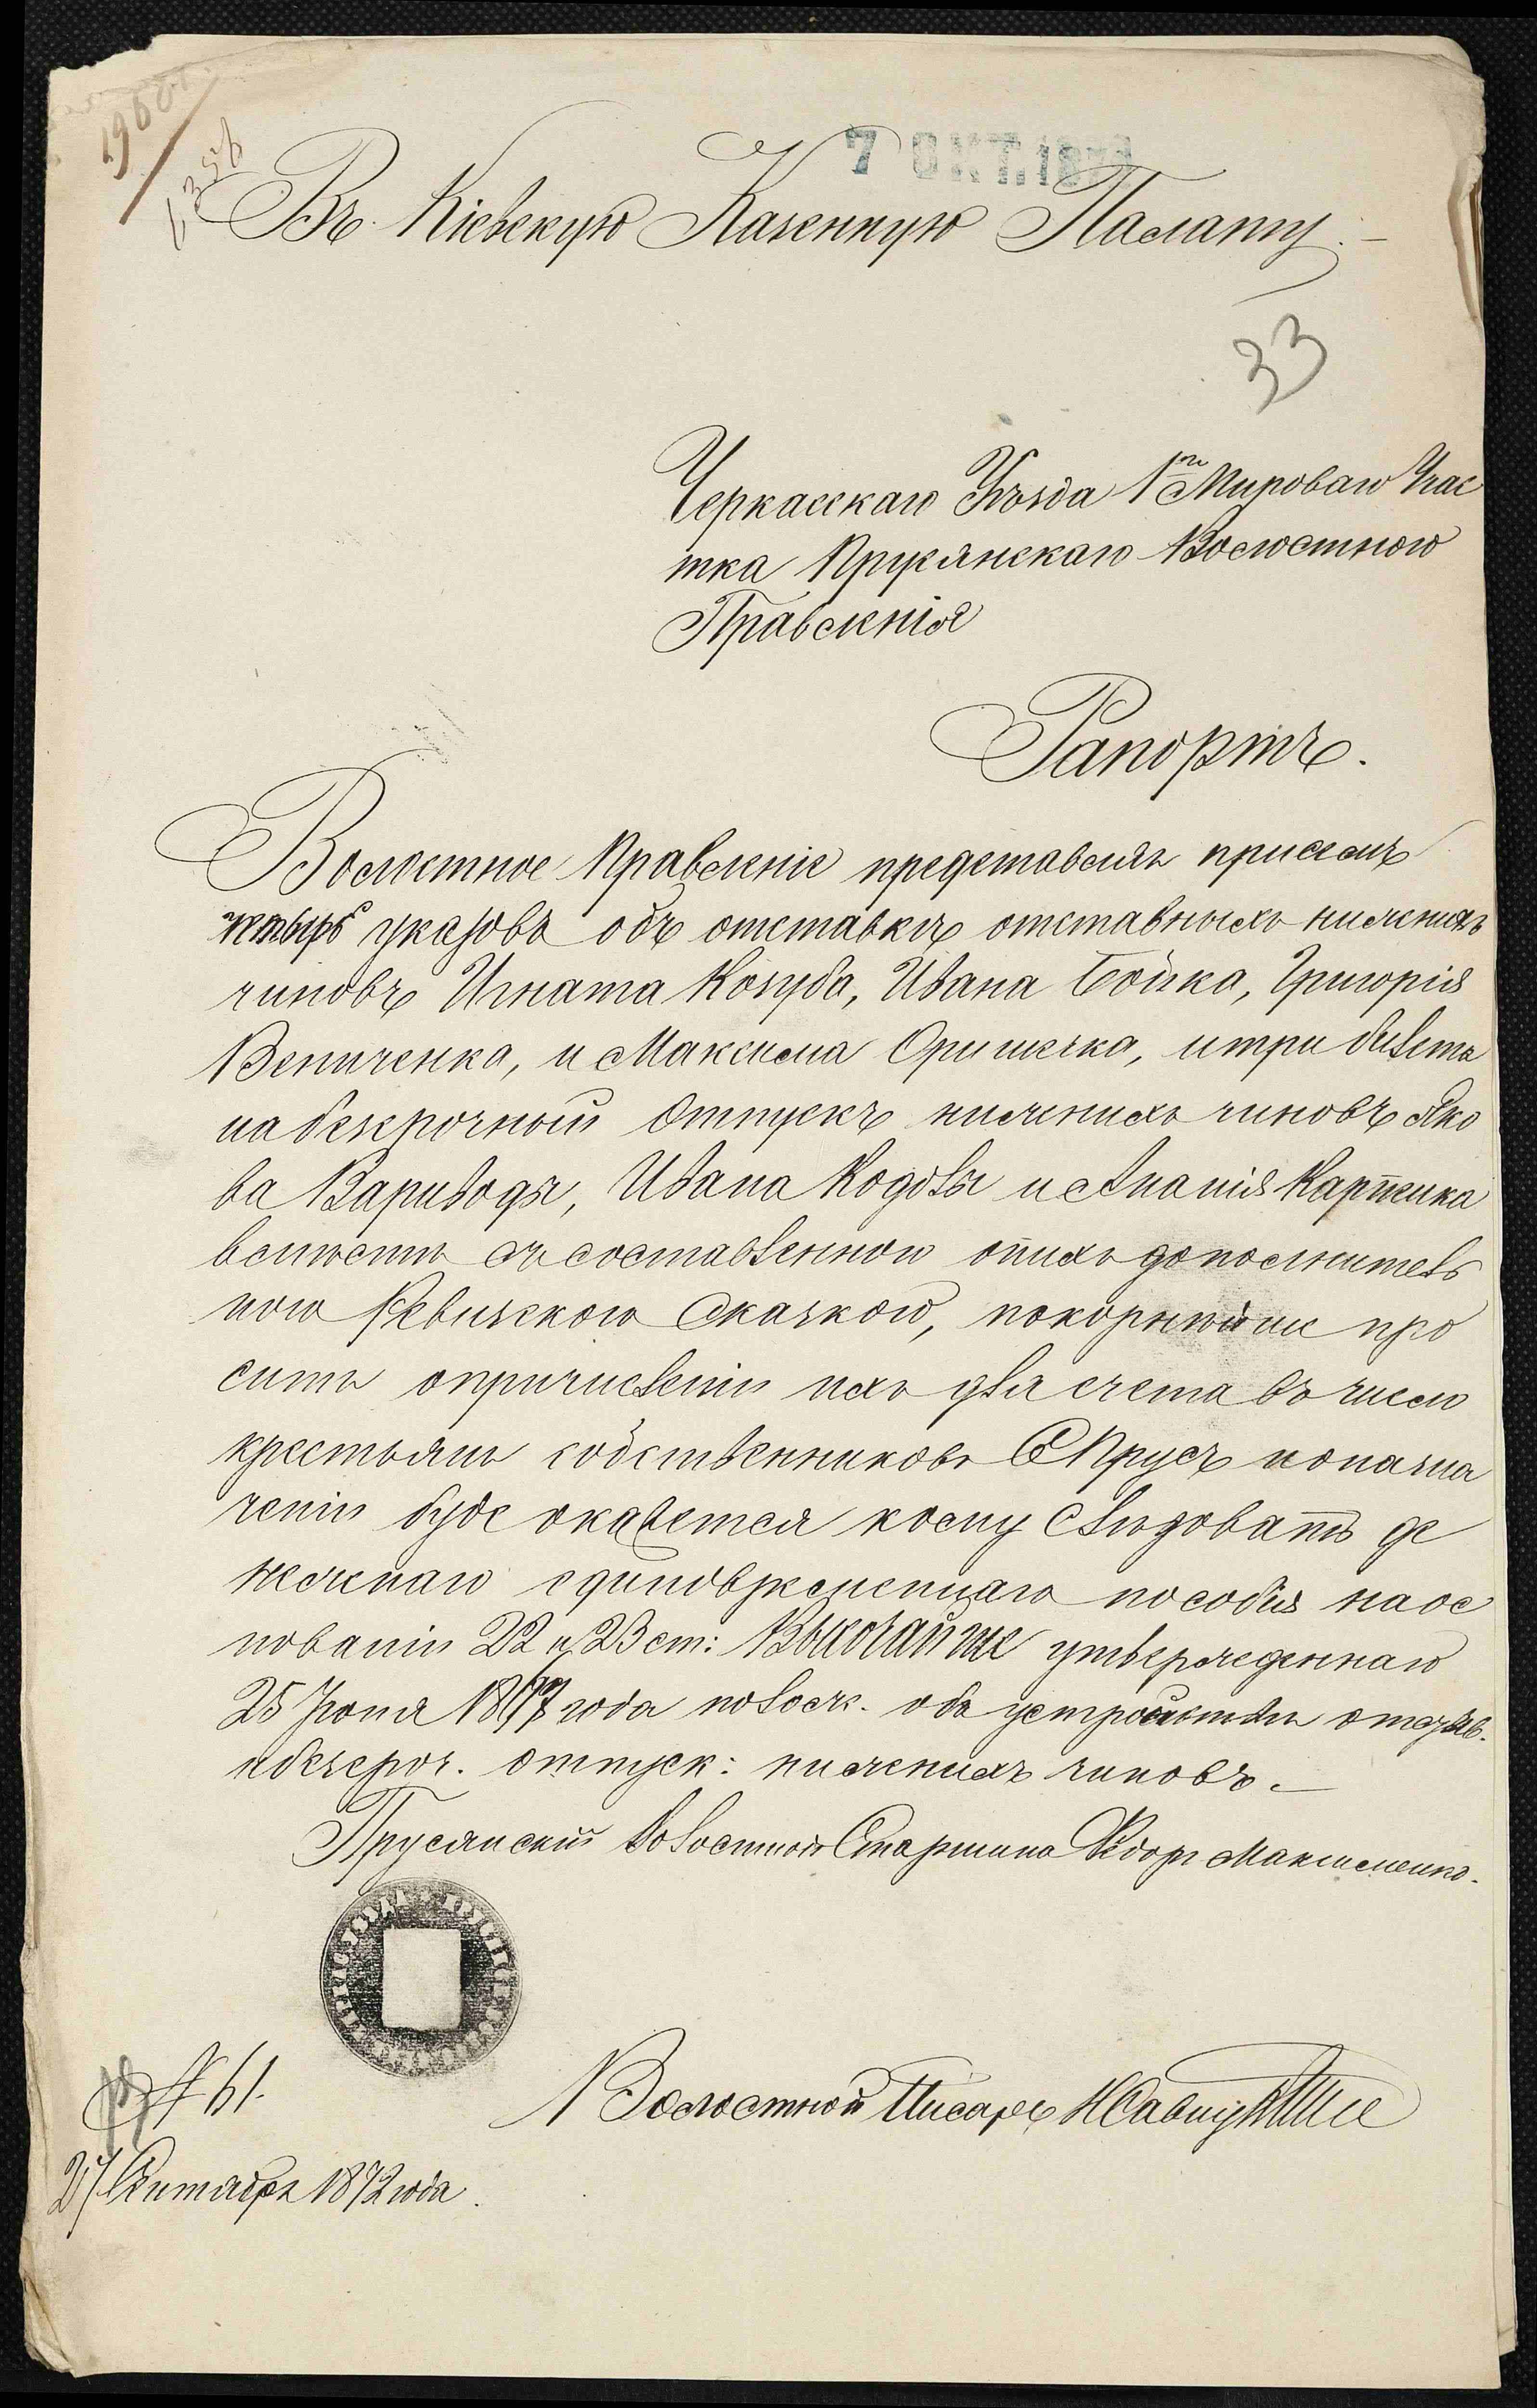 7 ОКТ. 187
Въ Кіевскую Казенную Палату.-
33
Черкасскаго Уѣзда 1го Мироваго Учас
тка Прусянскаго Волостного
Правленія
Рапортъ.
Волостное Правленіе представляя присемъ
четыре указовъ объ отставкѣ отставныхъ нижнихъ
чиновъ Игната Козуба, Ивана Бойка, Григорія
Величенка, и Максима Оришечка, и три билета
на безсрочный отпускъ нижнихъ чиновъ Яко
ва Вариводы, Ивана Кодолы и Ананія Карпенка
вмѣстѣ съ составленною о нихъ дополнитель
ною Ревизскою Сказкою, покорнѣйше про
ситъ о причисленіи ихъ для счета въ число
крестьянъ собственниковъ С Прусъ и о назна
ченіи буде окажется кому слѣдовать де
нежнаго единовременнаго пособія на ос
нованіи 22 и 23 ст: Высочайше утвержденнаго
25 Іюня 1867 года полож. объ устройствѣ отстав.
и безсроч. отпуск: нижнихъ чиновъ.-
Прусянскій Волостной Старшина Федоръ Максименко.
№ 61.
Волостной Писарь
27 Сентября 1872 года.